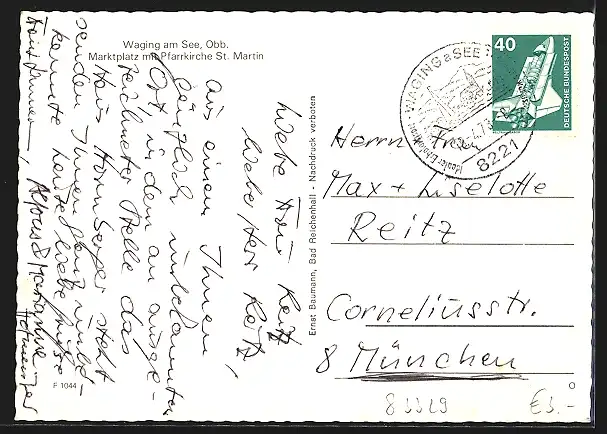 Waging am See, Obb.
Marktplatz mit Pfarrkirche St. Martin
Liebe Frau Reitz
lieber Herr Reitz,
aus einem Ihnen
gänzlich unbekannten
Ort, in dem an ausge-
zeichneter Stelle das
Haus Hornberger steht
senden Ihnen ganz unbe-
kannte Liebe Grüße
F 1044
Ernst Baumann, Bad Reichenhall - Nachdruck verboten
WAGING a SEE
8221
40
DEUTSCHE BUNDESPOST
Herrn + Frau
Max + Liselotte
Reitz
Corneliusstr.
8 München
83329
€3.-